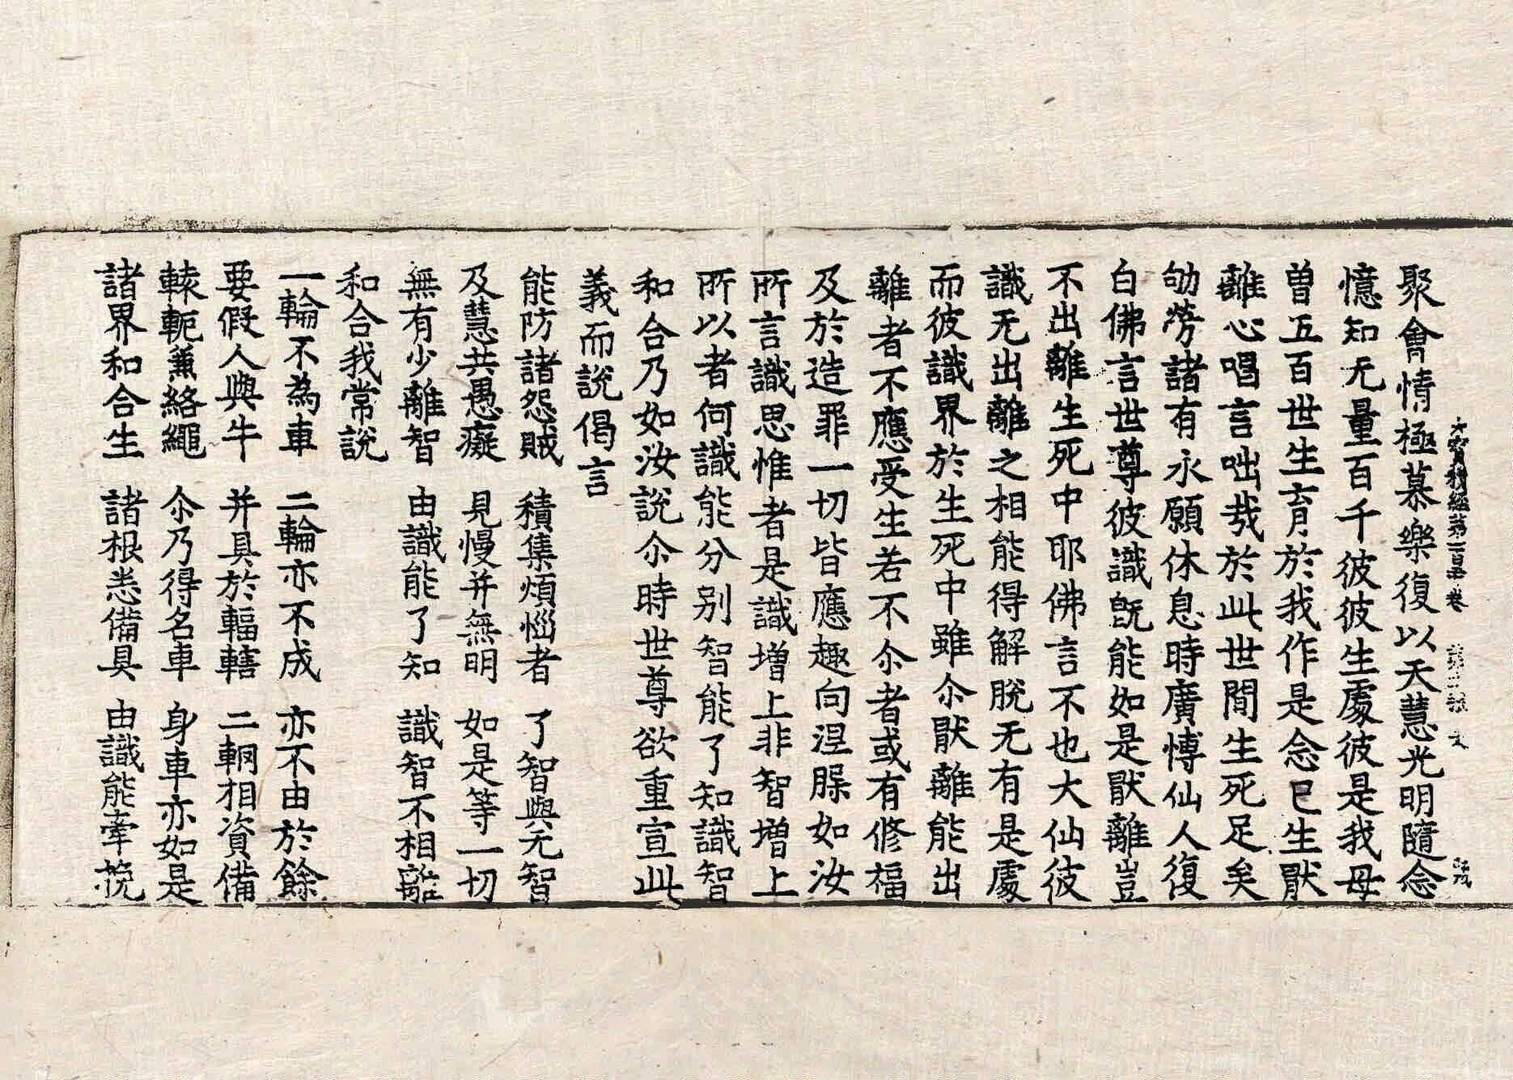 大寶積經第一百九卷 第二張 文
聚會情極慕樂復以天慧光明隨念
憶知无量百千彼彼生處彼是我母
曽五百世生育於我作是念已生猒
離心唱言咄㢤於此世間生死足矣
劬勞諸有永願休息時廣愽仙人復
白佛言世尊彼識旣能如是猒離豈
不出離生死中耶佛言不也大仙彼
識无出離之相能得解脫无有是處
而彼識界於生死中雖尒猒離能出
離者不應受生若不尒者或有修福
及於造罪一切皆應趣向涅槃如汝
所言識思惟者是識增上非智增上
所以者何識能分別智能了知識智
和合乃如汝說尒時世尊欲重宣此
義而說偈言
能防諸怨賊 積集煩惱者 了智與无智
及慧共愚癡 見慢并無明 如是等一切
無有少離智 由識能了知 識智不相離
和合我常說
一輪不為車 二輪亦不成 亦不由於餘
要假人與牛 并具於輻轄 二輞相資備
轅軛兼絡繩 尒乃得名車 身車亦如是
諸界和合生 諸根悉備具 由識能牽挽